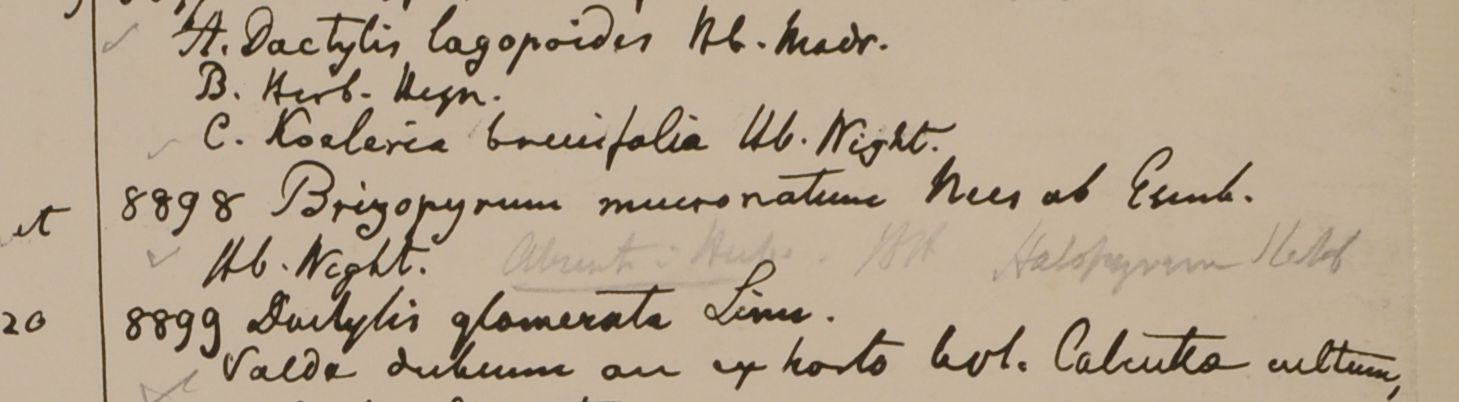 A. Dactylis lagopoides Hb. Madr.
B. Herb. Heyn.
C. Koeleria brevifolia Hb. Wight.
8898 Brizopyrum mucronatum Nees ab Esenb.
et
Hb. Wight. Absent in Herb. Halopyrum
20 8899 Dactylis glomerata Linn.
Valde dubium an ex horto bot. Calcutta cultum,